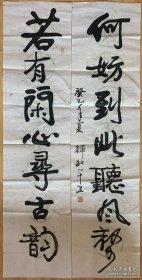 何妨到此聽風聲
若有閑心尋古韻
癸巳年夏